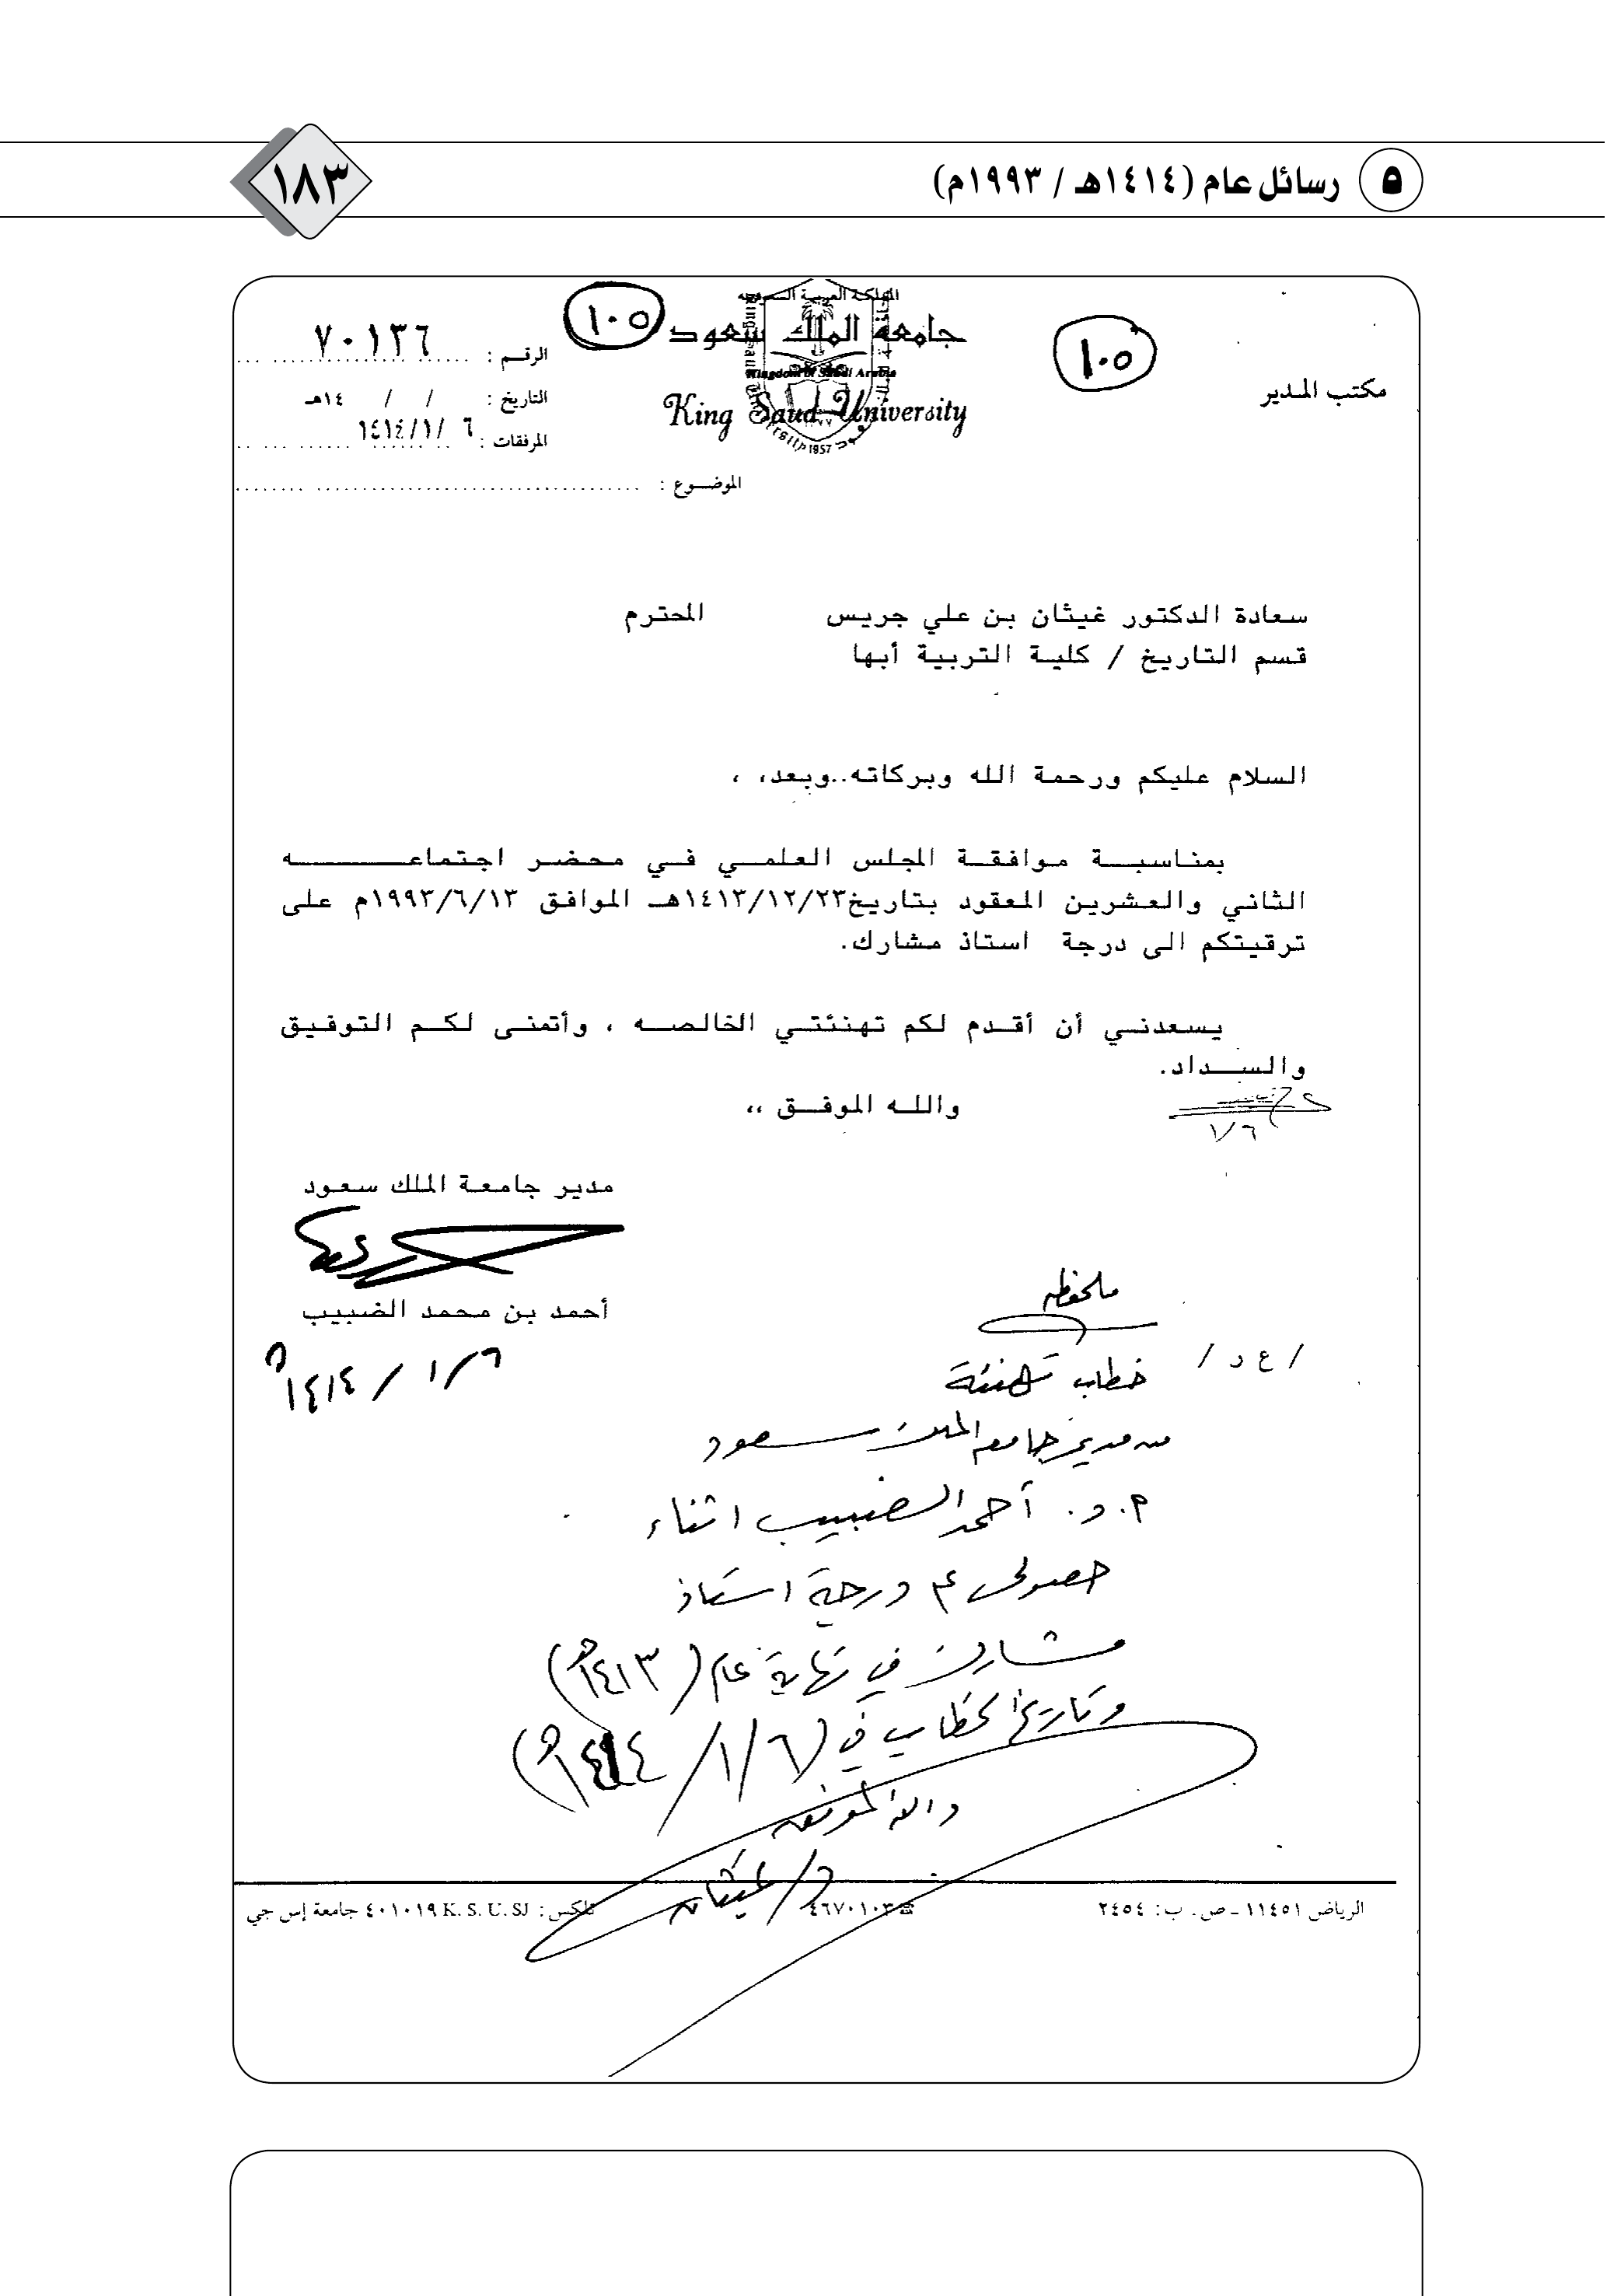 ٥ رسائل عام (١٤١٤هـ / ١٩٩٣م)
١٨٣
المملكة العربية السعودية
جامعة الملك سعود
Kingdom of Saudi Arabia
King Saud University
1957
١٠٥
١٠٥
مكتب المدير
الرقم : ٧٠١٣٦
التاريخ : / / ١٤هـ
المرفقات : ٦ /١/ ١٤١٤
الموضوع :
سعادة الدكتور غيثان بن علي جريس المحترم
قسم التاريخ / كلية التربية أبها
السلام عليكم ورحمة الله وبركاته..وبعد، ،
بمناسبة موافقة المجلس العلمي في محضر اجتماعه
الثاني والعشرين المعقود بتاريخ١٤١٣/١٢/٢٣هـ الموافق ١٩٩٣/٦/١٣م على
ترقيتكم الى درجة استاذ مشارك.
يسعدني أن أقدم لكم تهنئتي الخالصه ، وأتمنى لكم التوفيق
والسداد.
والله الموفق ،،
١/٦
مدير جامعة الملك سعود
أحمد بن محمد الضبيب
١/٦ / ١٤١٤هـ
/ ع ر /
ملحوظه
خطاب تهنئة
من مدير جامعه الملك سعود
أ. د. أحمد الضبيب اثناء
حصولي على درجة استاذ
مشارك في نهاية عام (١٤١٣هـ)
وتاريخ الخطاب في (١/٦/ ١٤١٤هـ)
والله الموفق
د/ غيثان
الرياض ١١٤٥١ ـ ص. ب: ٢٤٥٤ ☎ ٤٦٧٠١٠٣ تلكس: K. S. U. SJ ٤٠١٠١٩ جامعة إس جي